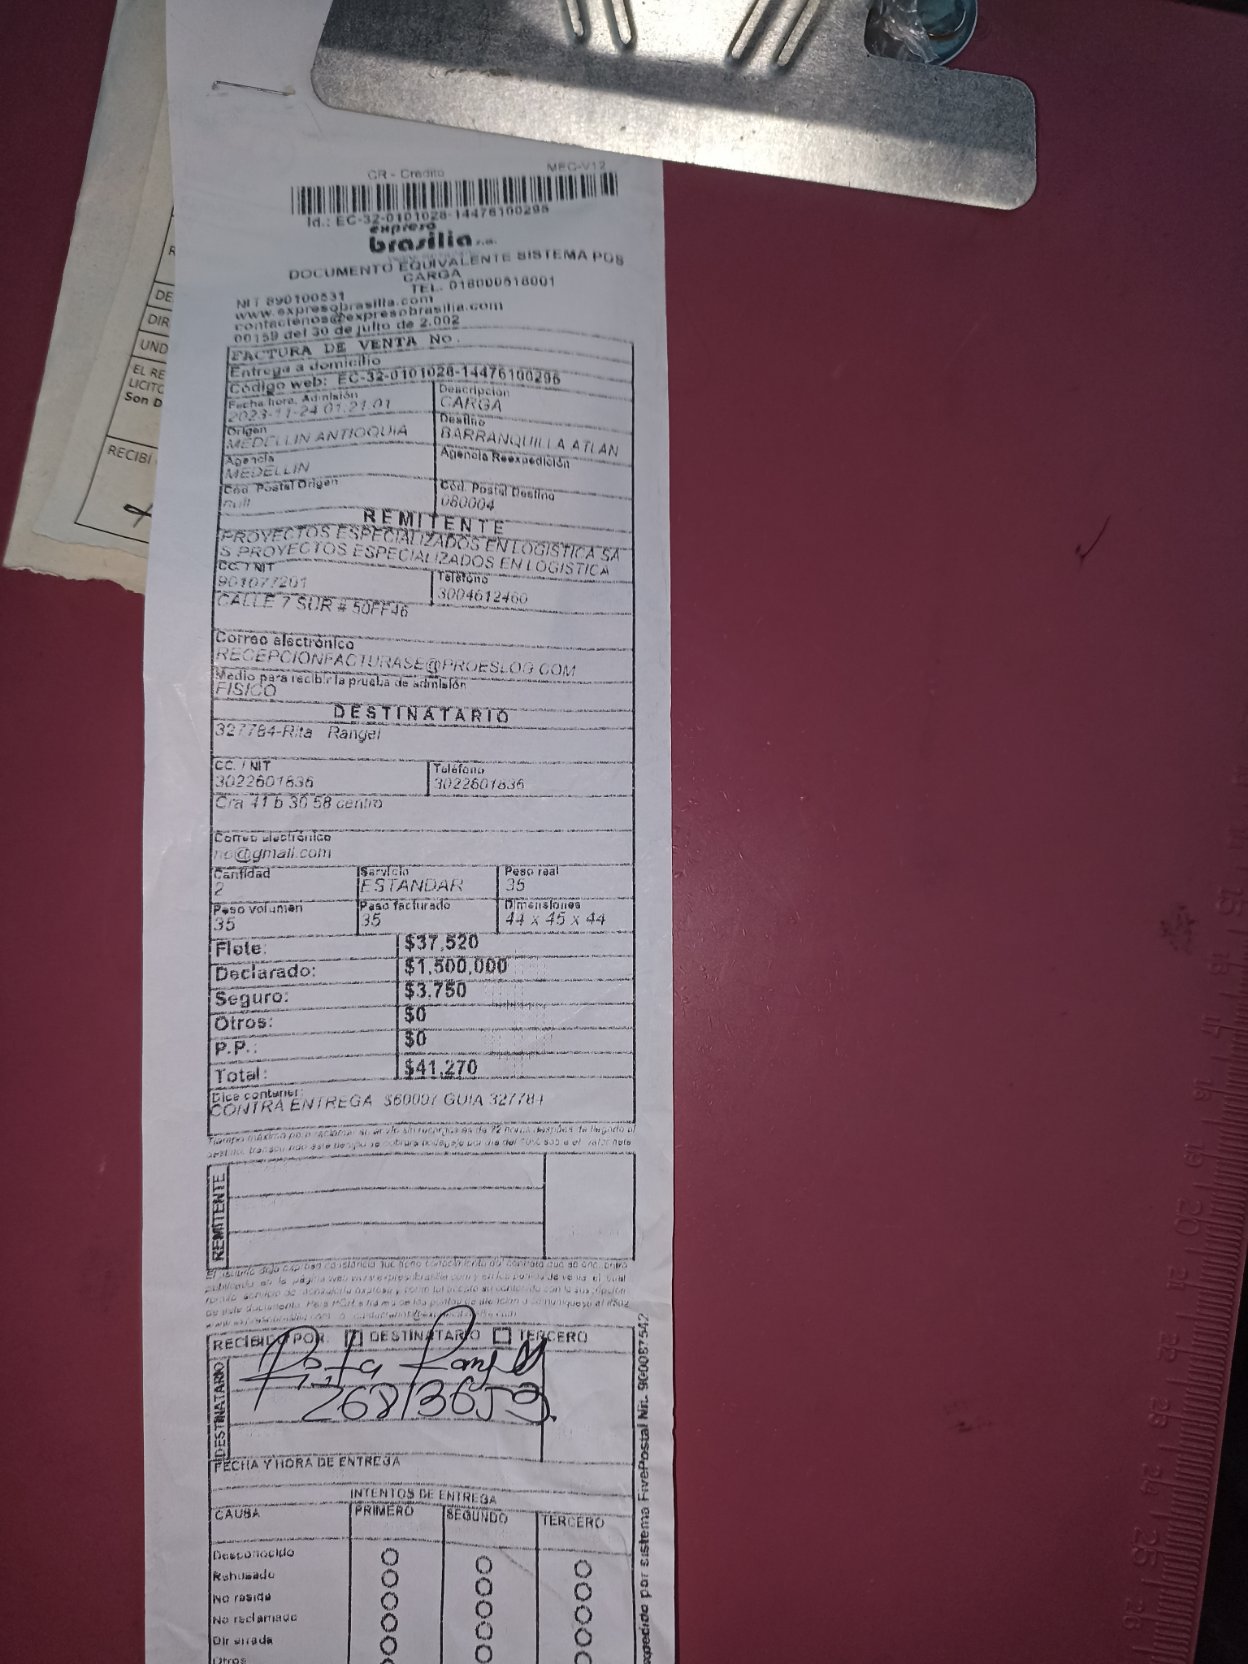 CR - Credito MEC-V12
Id.: EC-32-0101028-14476100295
expreso
brasilia s.a.
DOCUMENTO EQUIVALENTE SISTEMA POS
CARGA
NIT 890100531 TEL. 018000518001
www.expresobrasilia.com
contactenos@expresobrasilia.com
00159 del 30 de julio de 2.002
FACTURA DE VENTA No.
Entrega a domicilio
Código web: EC-32-0101028-14476100295
Fecha hora, Admisión Descripción
2023-11-24 01:21:01 CARGA
Origen Destino
MEDELLIN ANTIOQUIA BARRANQUILLA ATLAN
Agencia Agencia Reexpedición
MEDELLIN
Cód. Postal Origen Cód. Postal Destino
null 080004
REMITENTE
PROYECTOS ESPECIALIZADOS EN LOGISTICA SA
S PROYECTOS ESPECIALIZADOS EN LOGISTICA
CC. / NIT Teléfono
901077201 3004612460
CALLE 7 SUR # 50FF46
Correo electrónico
RECEPCIONFACTURASE@PROESLOG.COM
Medio para recibir la prueba de admisión
FISICO
DESTINATARIO
327784-Rita Rangel
CC. / NIT Teléfono
3022601836 3022601836
Cra 41 b 30 58 centro
Correo electrónico
no@gmail.com
Cantidad Servicio Peso real
2 ESTANDAR 35
Peso volumen Peso facturado Dimensiones
35 35 44 x 45 x 44
Flete: $37,520
Declarado: $1,500,000
Seguro: $3,750
Otros: $0
P.P.: $0
Total: $41,270
Dice contener:
CONTRA ENTREGA $60007 GUIA 327784
REMITENTE
RECIBIDO POR: DESTINATARIO TERCERO
DESTINATARIO
26813653
FECHA Y HORA DE ENTREGA
INTENTOS DE ENTREGA
CAUSA PRIMERO SEGUNDO TERCERO
Desconocido
Rehusado
No reside
No reclamado
Dir errada
Otros
expedido por sistema FivePostal Nit. 900087542
DE
DIR
UND
EL RE
LICITO
Son D
RECIBI